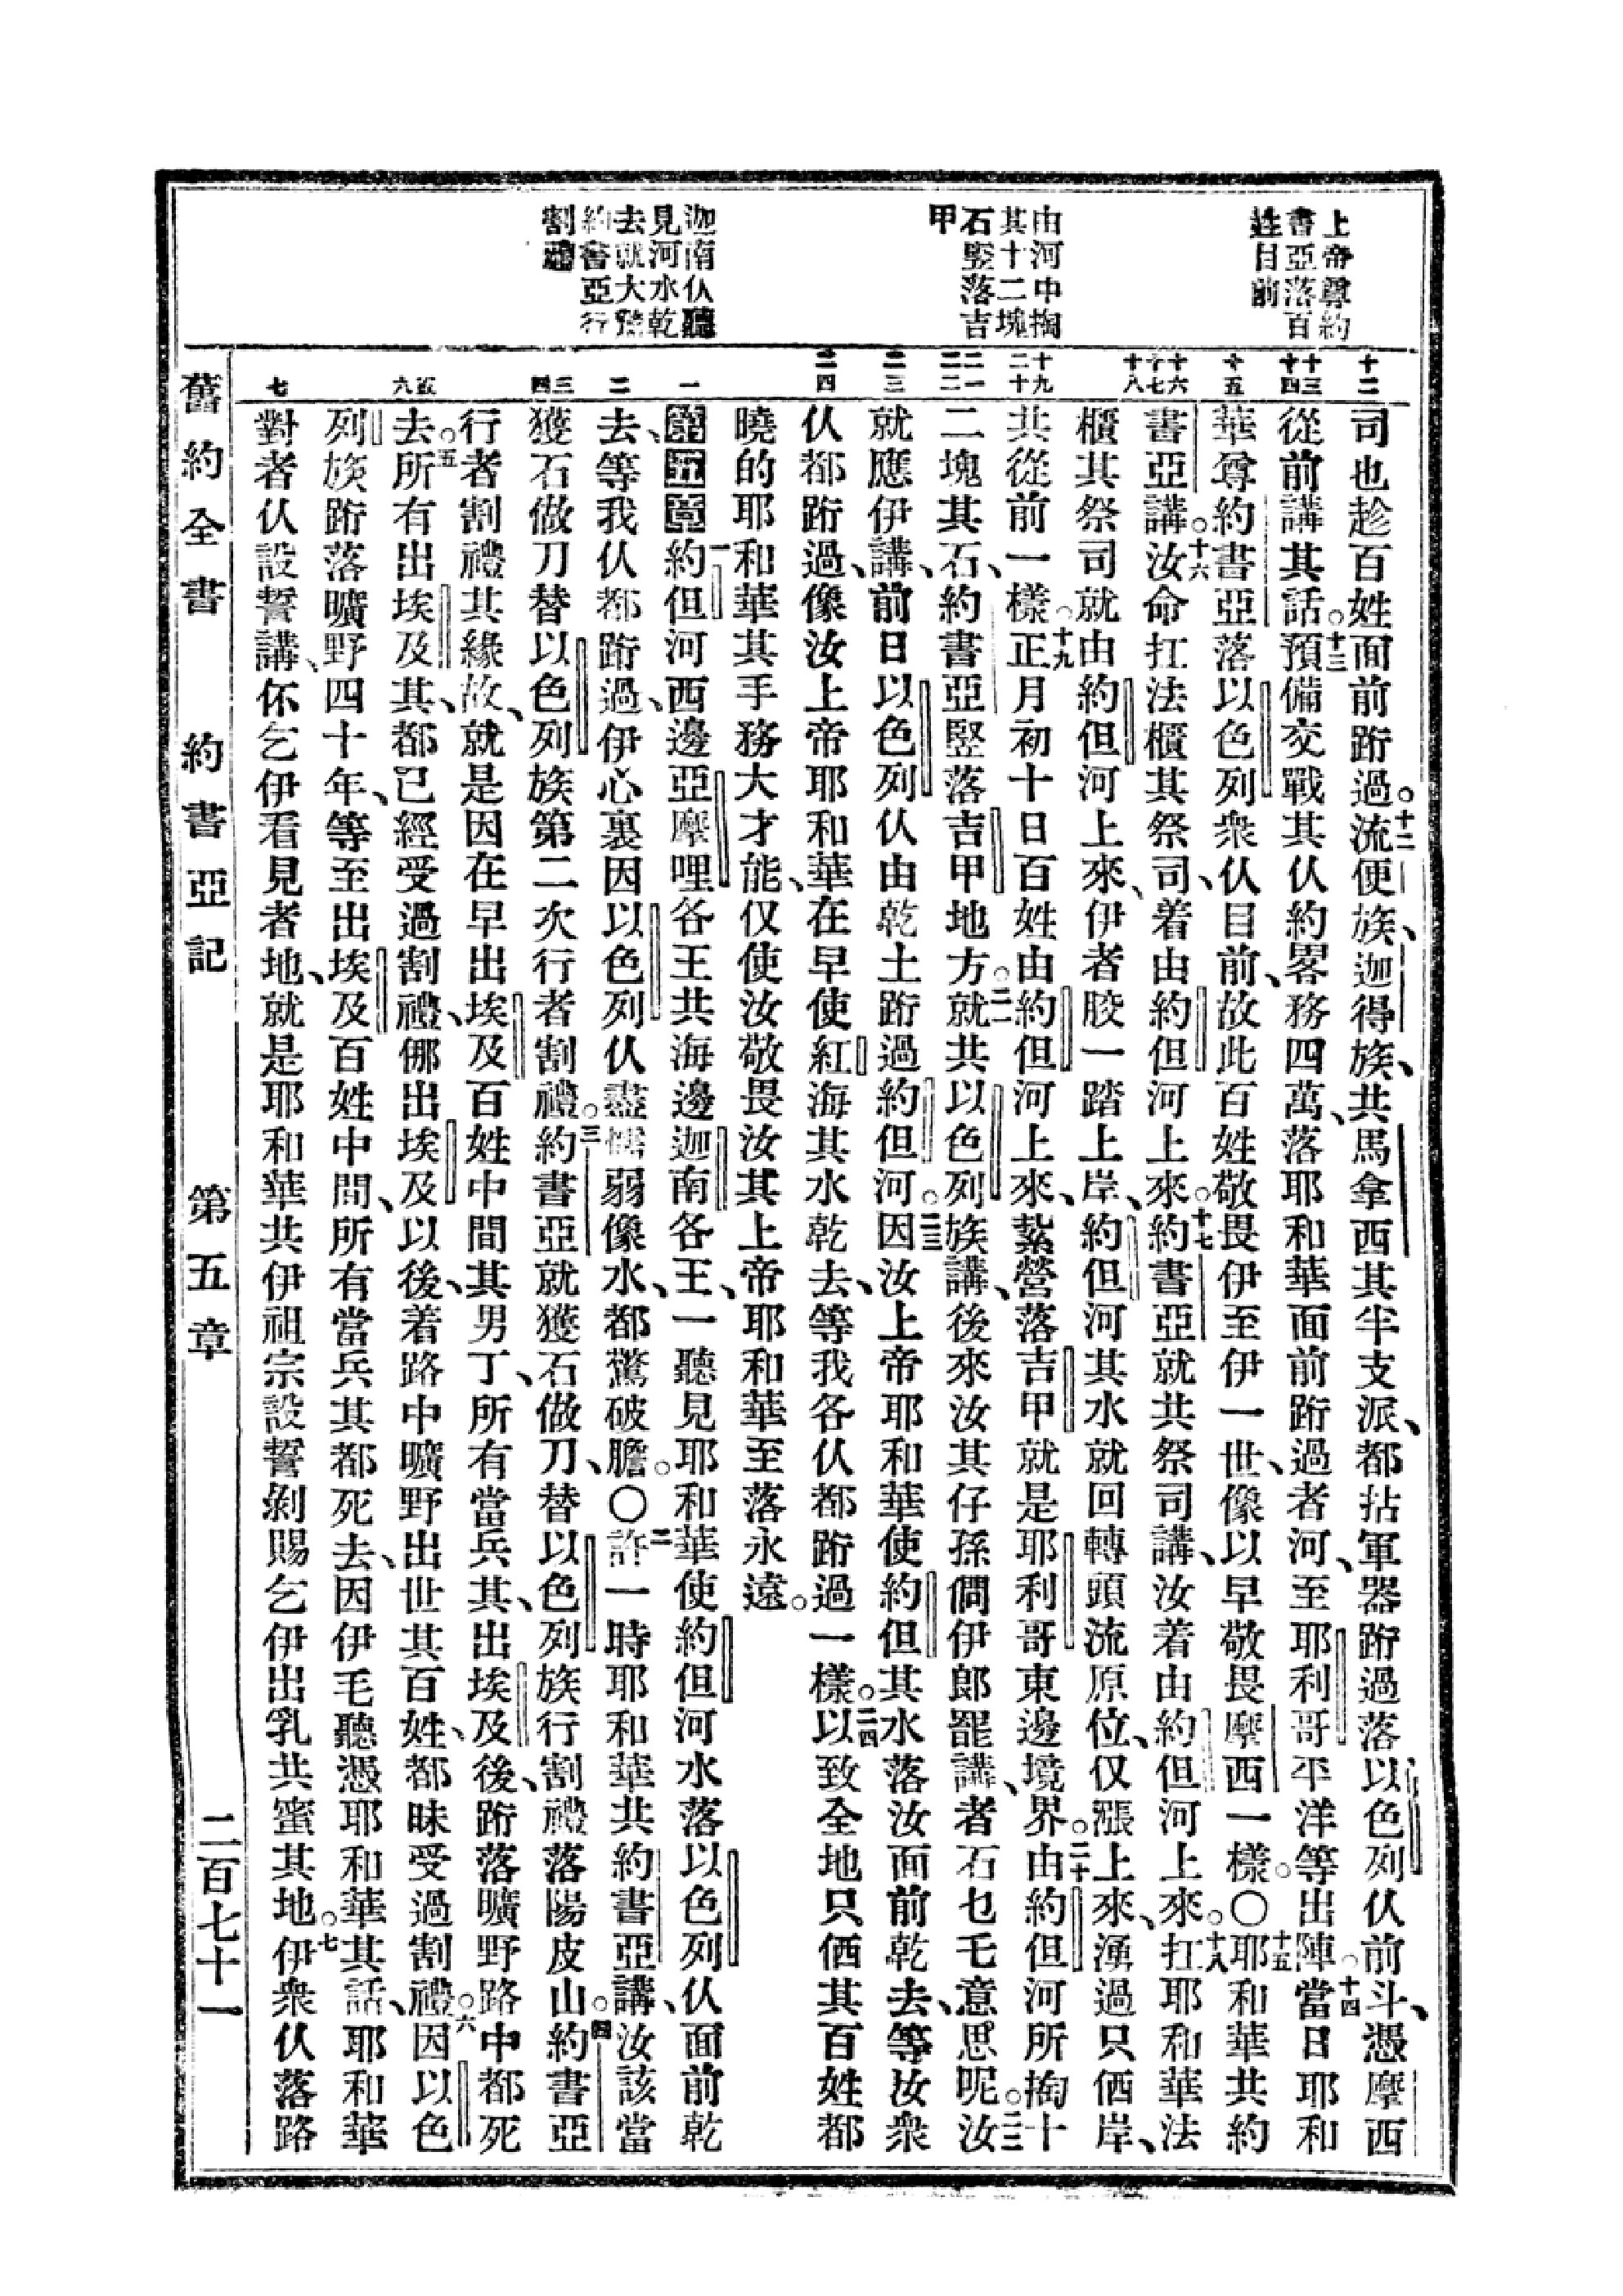 上帝尊約
書亞落百
姓目前
由河中掏
其十二塊
石竪落吉
甲
迦南仫聽
見河水乾
去就大驚
約書亞行
割禮
十二
十三
十四
十五
十六
十七
十八
十九
二十
二一
二二
二三
二四
一
二
三
四
五
六
七
司也趁百姓面前跨過。十二流便族、迦得族、共馬拿西其半支派、都拈軍器跨過落以色列仫前斗、憑摩西
從前講其話。十三預備交戰其仫約畧務四萬、落耶和華面前跨過者河、至耶利哥平洋等出陣。十四當日耶和
華尊約書亞落以色列衆仫目前、故此百姓敬畏伊至伊一世、像以早敬畏摩西一樣。〇十五耶和華共約
書亞講。十六汝命扛法櫃其祭司、着由約但河上來。十七約書亞就共祭司講、汝着由約但河上來。十八扛耶和華法
櫃其祭司就由約但河上來、伊者骹一踏上岸、約但河其水就回轉頭流原位、仅漲上來、湧過只仴岸、
共從前一樣。十九正月初十日百姓由約但河上來、紮營落吉甲就是耶利哥東邊境界。二十由約但河所掏十
二塊其石、約書亞竪落吉甲地方。二一就共以色列族講、後來汝其仔孫倘伊郎罷講、者石乜乇意思呢。二二汝
就應伊講、前日以色列仫由乾土跨過約但河。二三因汝上帝耶和華使約但其水落汝面前乾去、等汝衆
仫都跨過、像汝上帝耶和華在早使紅海其水乾去、等我各仫都跨過一樣。二四以致全地只仴其百姓都
曉的耶和華其手務大才能、仅使汝敬畏汝其上帝耶和華至落永遠。
第五章 一約但河西邊亞摩哩各王共海邊迦南各王、一聽見耶和華使約但河水落以色列仫面前乾
去、等我仫都跨過、伊心裏因以色列仫盡懦弱像水、都驚破膽。〇二許一時耶和華共約書亞講、汝該當
獲石做刀替以色列族第二次行者割禮。三約書亞就獲石做刀、替以色列族行割禮落陽皮山。四約書亞
行者割禮其緣故、就是因在早出埃及百姓中間其男丁、所有當兵其、出埃及後、跨落曠野路中都死
去。五所有出埃及其、都已經受過割禮、倻出埃及以後、着路中曠野出世其百姓、都昧受過割禮。六因以色
列族跨落曠野四十年、等至出埃及百姓中間、所有當兵其都死去、因伊毛聽憑耶和華其話、耶和華
對者仫設誓講、伓乞伊看見者地、就是耶和華共伊祖宗設誓剝賜乞伊出乳共蜜其地。七伊衆仫落路
舊約全書 約書亞記 第五章 二百七十一